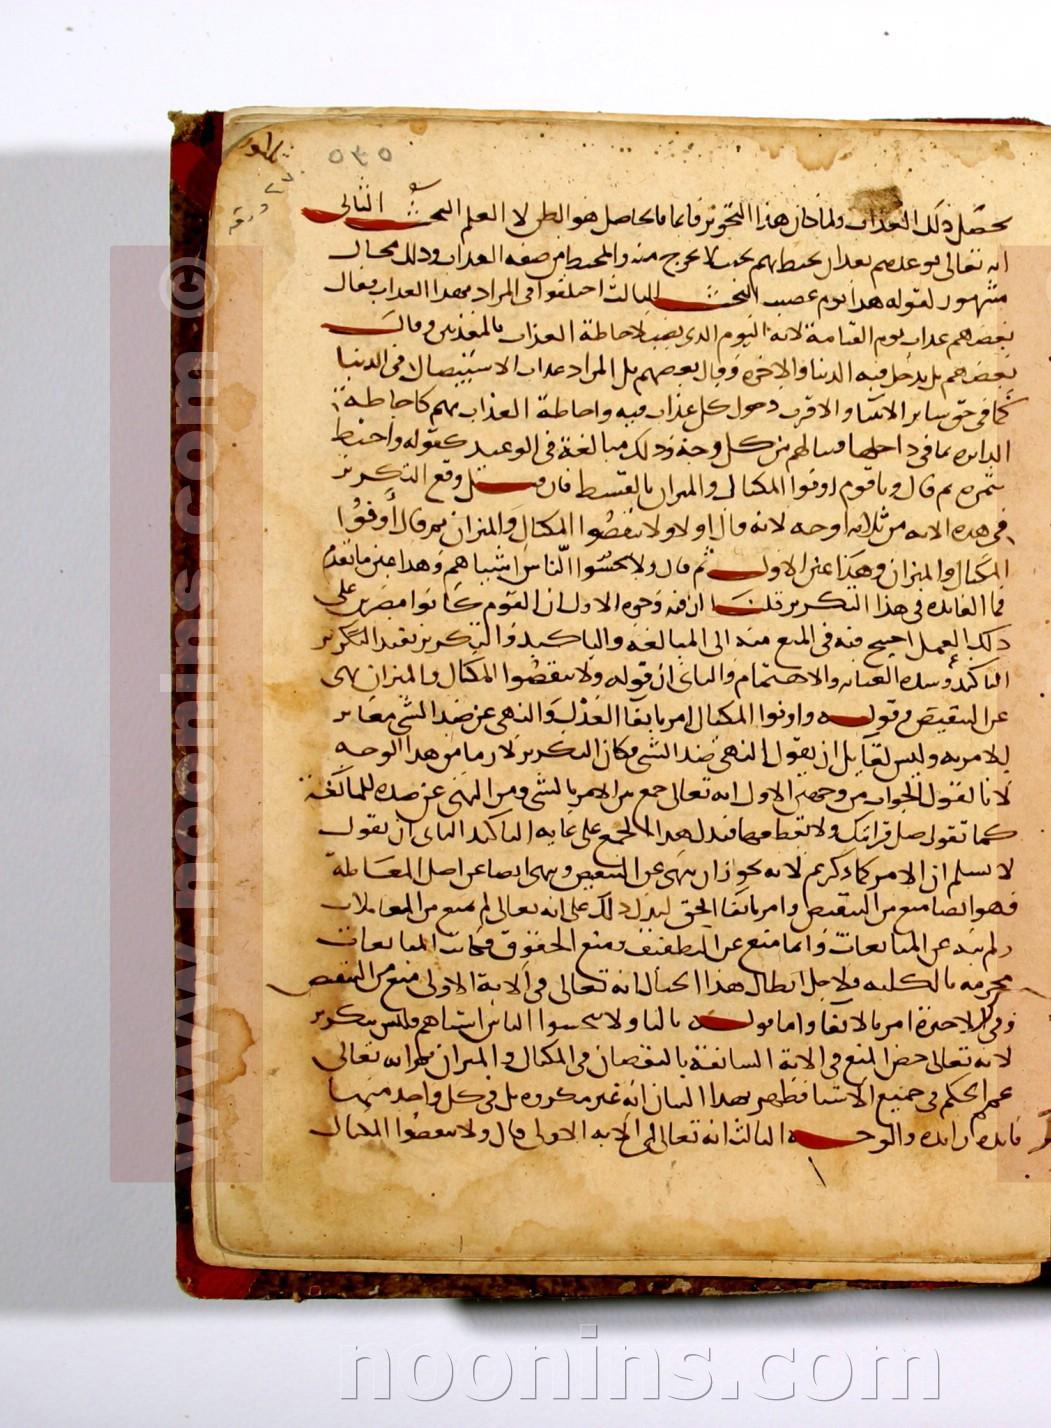 يحصل ذلك العذاب ولما كان هذا التجويز قائما فالحاصل هو الظن لا العلم البحث الثاني
انه تعالى توعدهم بعذاب يحيط بهم بحيث لا يخرج منه والمحيط من صفه العذاب وذلك مجاز
مشهور لقوله هذا يوم عصيب البحث الثالث اختلفوا في المراد بهذا العذاب فقال
بعضهم عذاب يوم القيامة لانه اليوم الذي نصب لاحاطة العذاب بالمعذبين وقال
بعضهم بل يدخل فيه الدنيا والاخره وقال بعضهم بل المراد عذاب الاستيصال في الدنيا
كما في حق ساير الانبيا والاقرب دخول كل عذاب فيه واحاطة العذاب بهم كاحاطة
الدايره بما في داخلها فينالهم من كل وجه وذلك مبالغة في الوعيد كقوله واحيط
بثمره ثم قال ويا قوم اوفوا المكيال والميزان بالقسط فان قيل وقع التكرير
في هذه الايه من ثلاثه اوجه لانه قال اولا ولا تنقصوا المكيال والميزان ثم قال اوفوا
المكيال والميزان وهذا عين الاول ثم قال ولا تبخسوا الناس اشياءهم وهذا عين ما تقدم
فما الفايده في هذا التكرير قلنا ان فيه وجوه الاول ان القوم كانوا مصرين على
ذلك العمل احتيج فيه في المنع منه الى المبالغه والتاكيد والتكرير يفيد التكرير
التاكيد وشدة العنايه والاهتمام والثاني ان قوله ولا تنقصوا المكيال والميزان نهى
عن التنقيص وقوله واوفوا المكيال امر بايفا العدل والنهي عن ضد الشي مغاير
للامر به وليس لقايل ان يقول النهي ضد الشي فكان التكرير لازما من هذا الوجه
لانا نقول الجواب من وجهين الاول انه تعالى جمع بين الامر بالشي ومن النهي عن ضده للمبالغة
كما تقول صل قرابتك ولا تقطعهم فيدل هذا الجمع على غايه التاكيد الثاني ان نقول
لا نسلم ان الامر كما ذكرتم لانه يجوز ان ينهى عن التنقيص وينهى ايضا عن اصل المعاملة
فهو ايضا منع من التنقيص وامر بايفا الحق ليدل ذلك على انه تعالى لم يمنع من المعاملات
ولم ينه عن المبايعات وانما منع عن التطفيف ومنع الحقوق فكانت المبايعات
محرمه بالكليه فلاجل ابطال هذا الخيال انه تعالى في الاية الاولى منع من التنقيص
وفي الاخيرة امر بالايفا واما قوله ثالثا ولا تبخسوا الناس اشياهم فليس بتكرير
لانه تعالى خص المنع في الاية السابقة بالنقصان في المكيال والميزان ثم انه تعالى
عمم الحكم في جميع الاشيا فظهر بهذا البيان انه غير مكرر بل في كل واحد منهما
فايده زايده والوجه الثالث انه تعالى في الايه الاولى قال ولا تنقصوا المكيال
٥٣٥
www.noonins.com ©
noonins.com